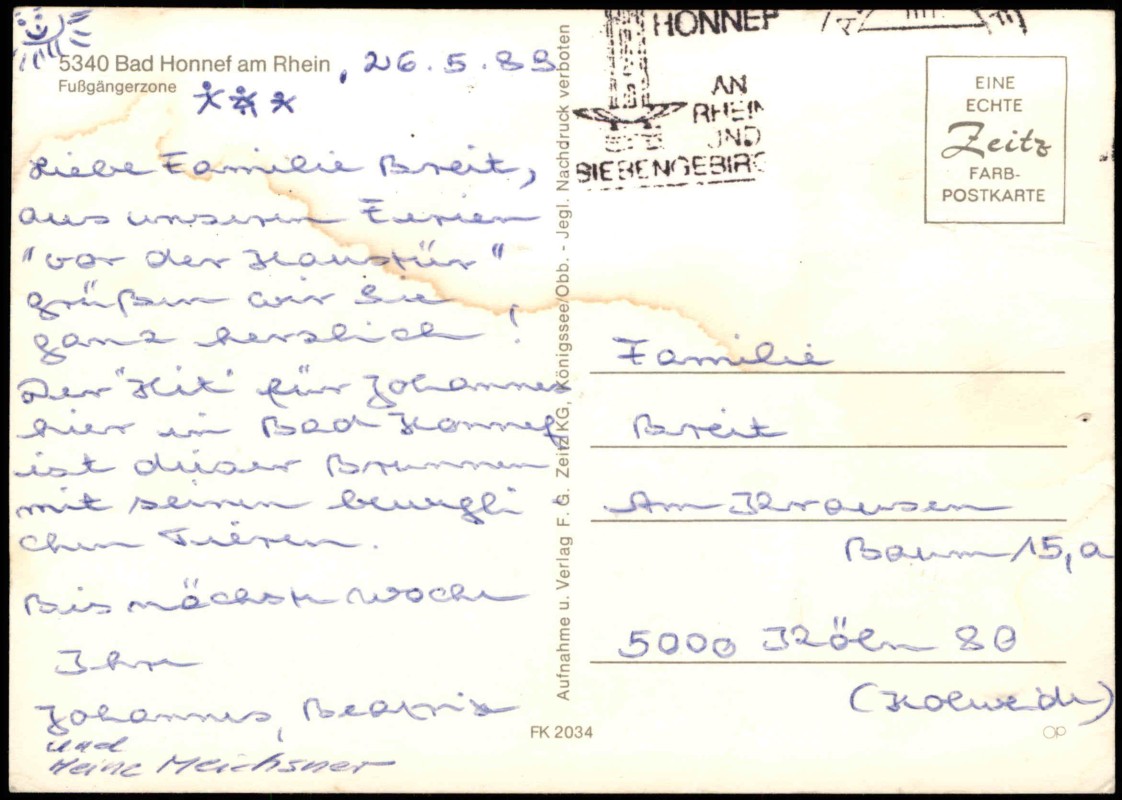 5340 Bad Honnef am Rhein, 26.5.89
Fußgängerzone
Liebe Familie Breit,
aus unseren Ferien
"vor der Haustür"
grüßen wir Sie
ganz herzlich!
Der "Hit" für Johannes
hier in Bad Honnef
ist dieser Brunnen
mit seinen bewegli
chen Tieren.
Bis nächste Woche
Ihre
Johannes, Beatrix
und
Heinz Meichsner
Aufnahme u. Verlag F. G. Zeitz KG, Königssee/Obb. - Jegl. Nachdruck verboten
FK 2034
HONNEF
AN
RHEIN
UND
SIEBENGEBIRG
EINE
ECHTE
Zeitz
FARB-
POSTKARTE
Familie
Breit
Am Krausen
Baum 15,a
5000 Köln 80
(Holweide)